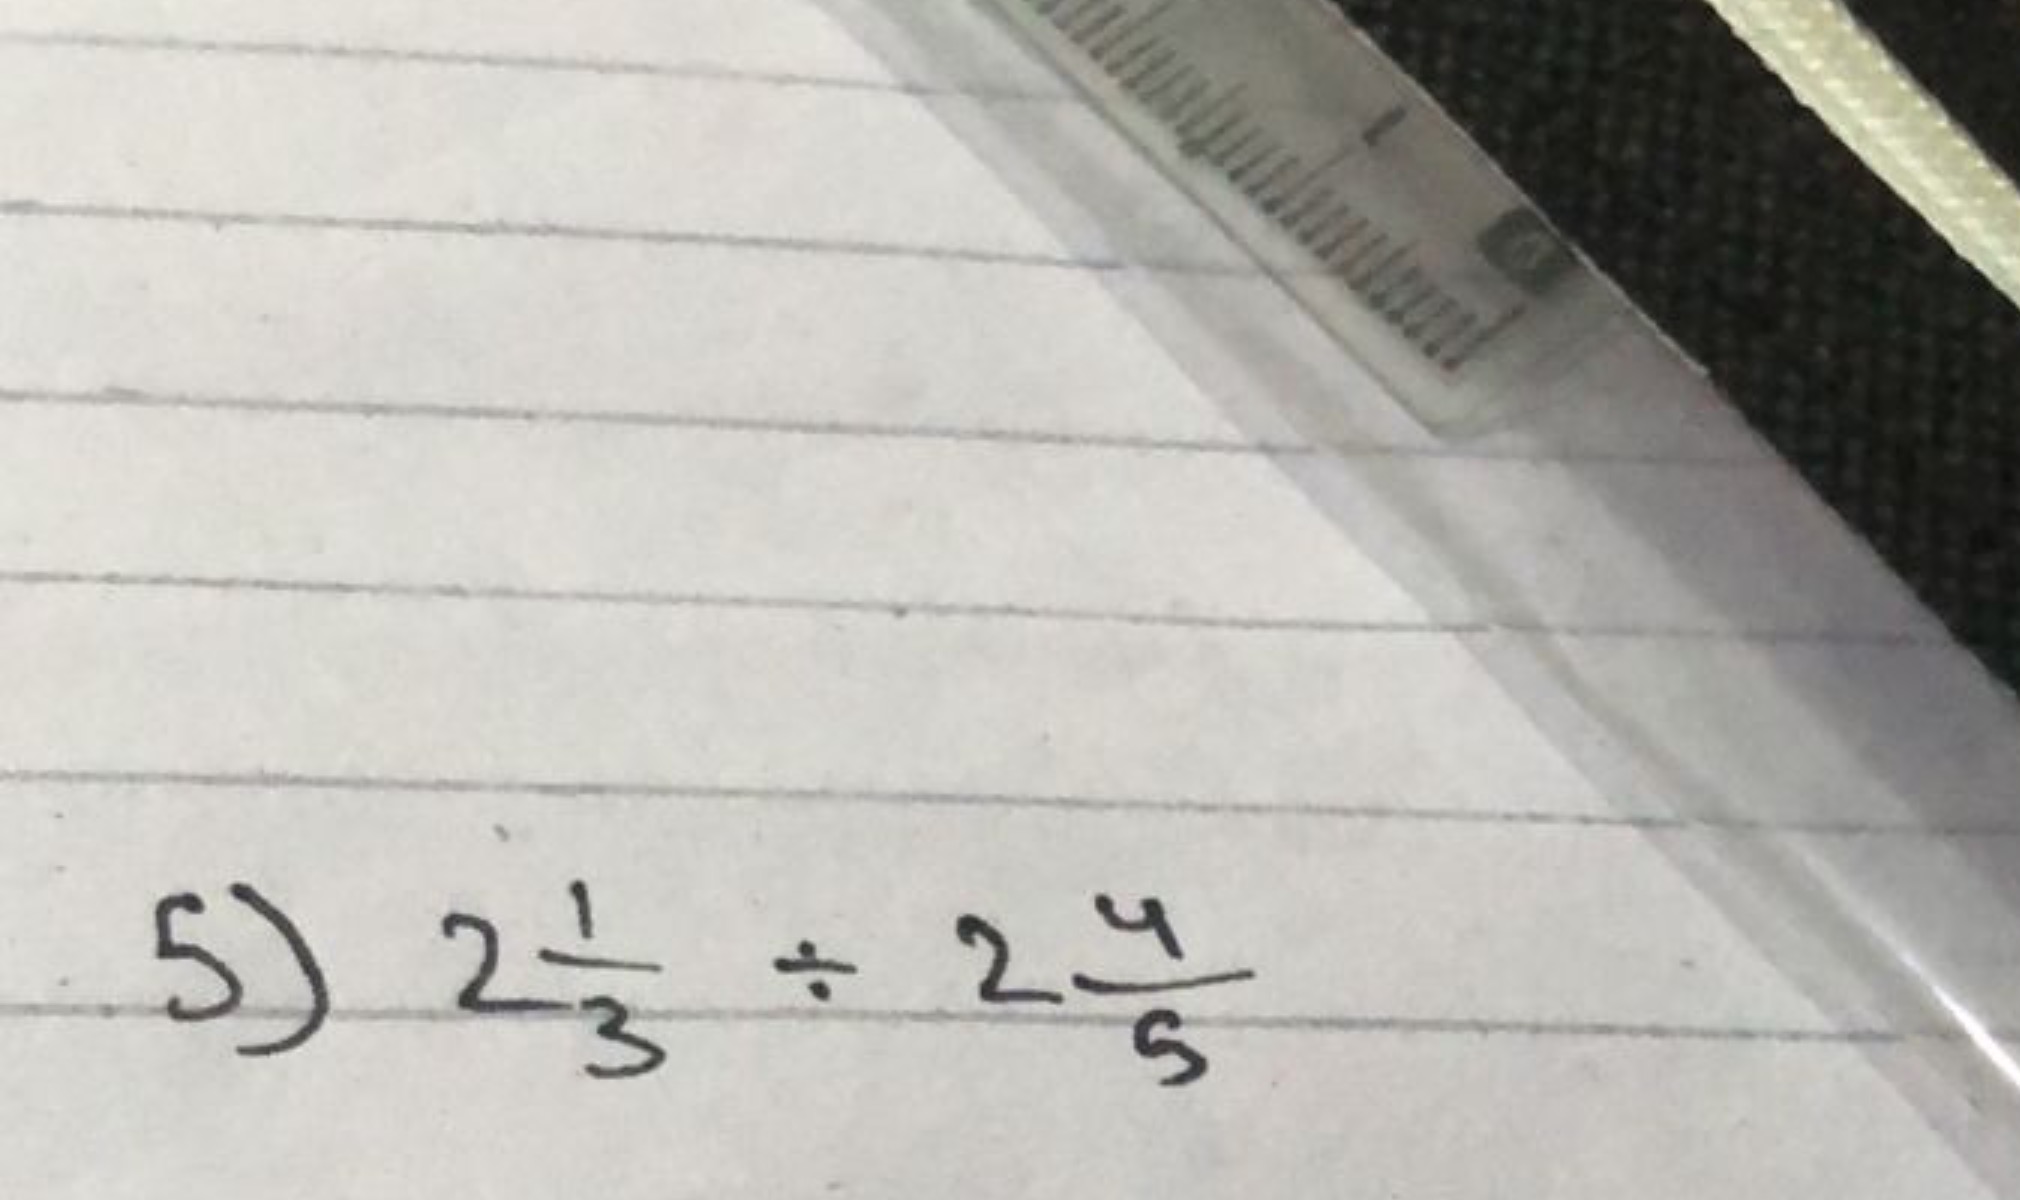 5) 2 1/3 ÷ 2 4/5